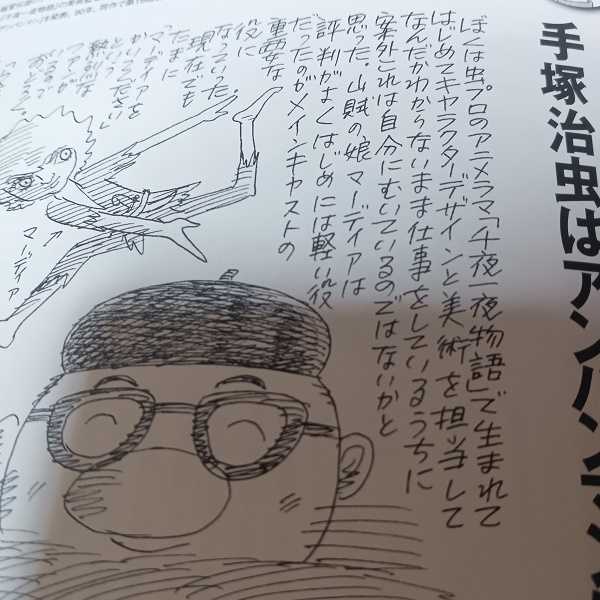 手塚治虫はアンパンマン
ぼくは虫プロのアニメラマ「千夜一夜物語」で生まれて
はじめてキャラクターデザインと美術を担当して
なんだかわからないまま仕事をしているうちに
案外これは自分にむいているのではないかと
思った。山賊の娘マーディアは
評判がよくはじめには軽い役
だったのがメインキャストの
重要な
役に
なっていった。
現在でも
たまに
「マーディアを
かいてください」
という
熱烈な
ファンが
マーディア